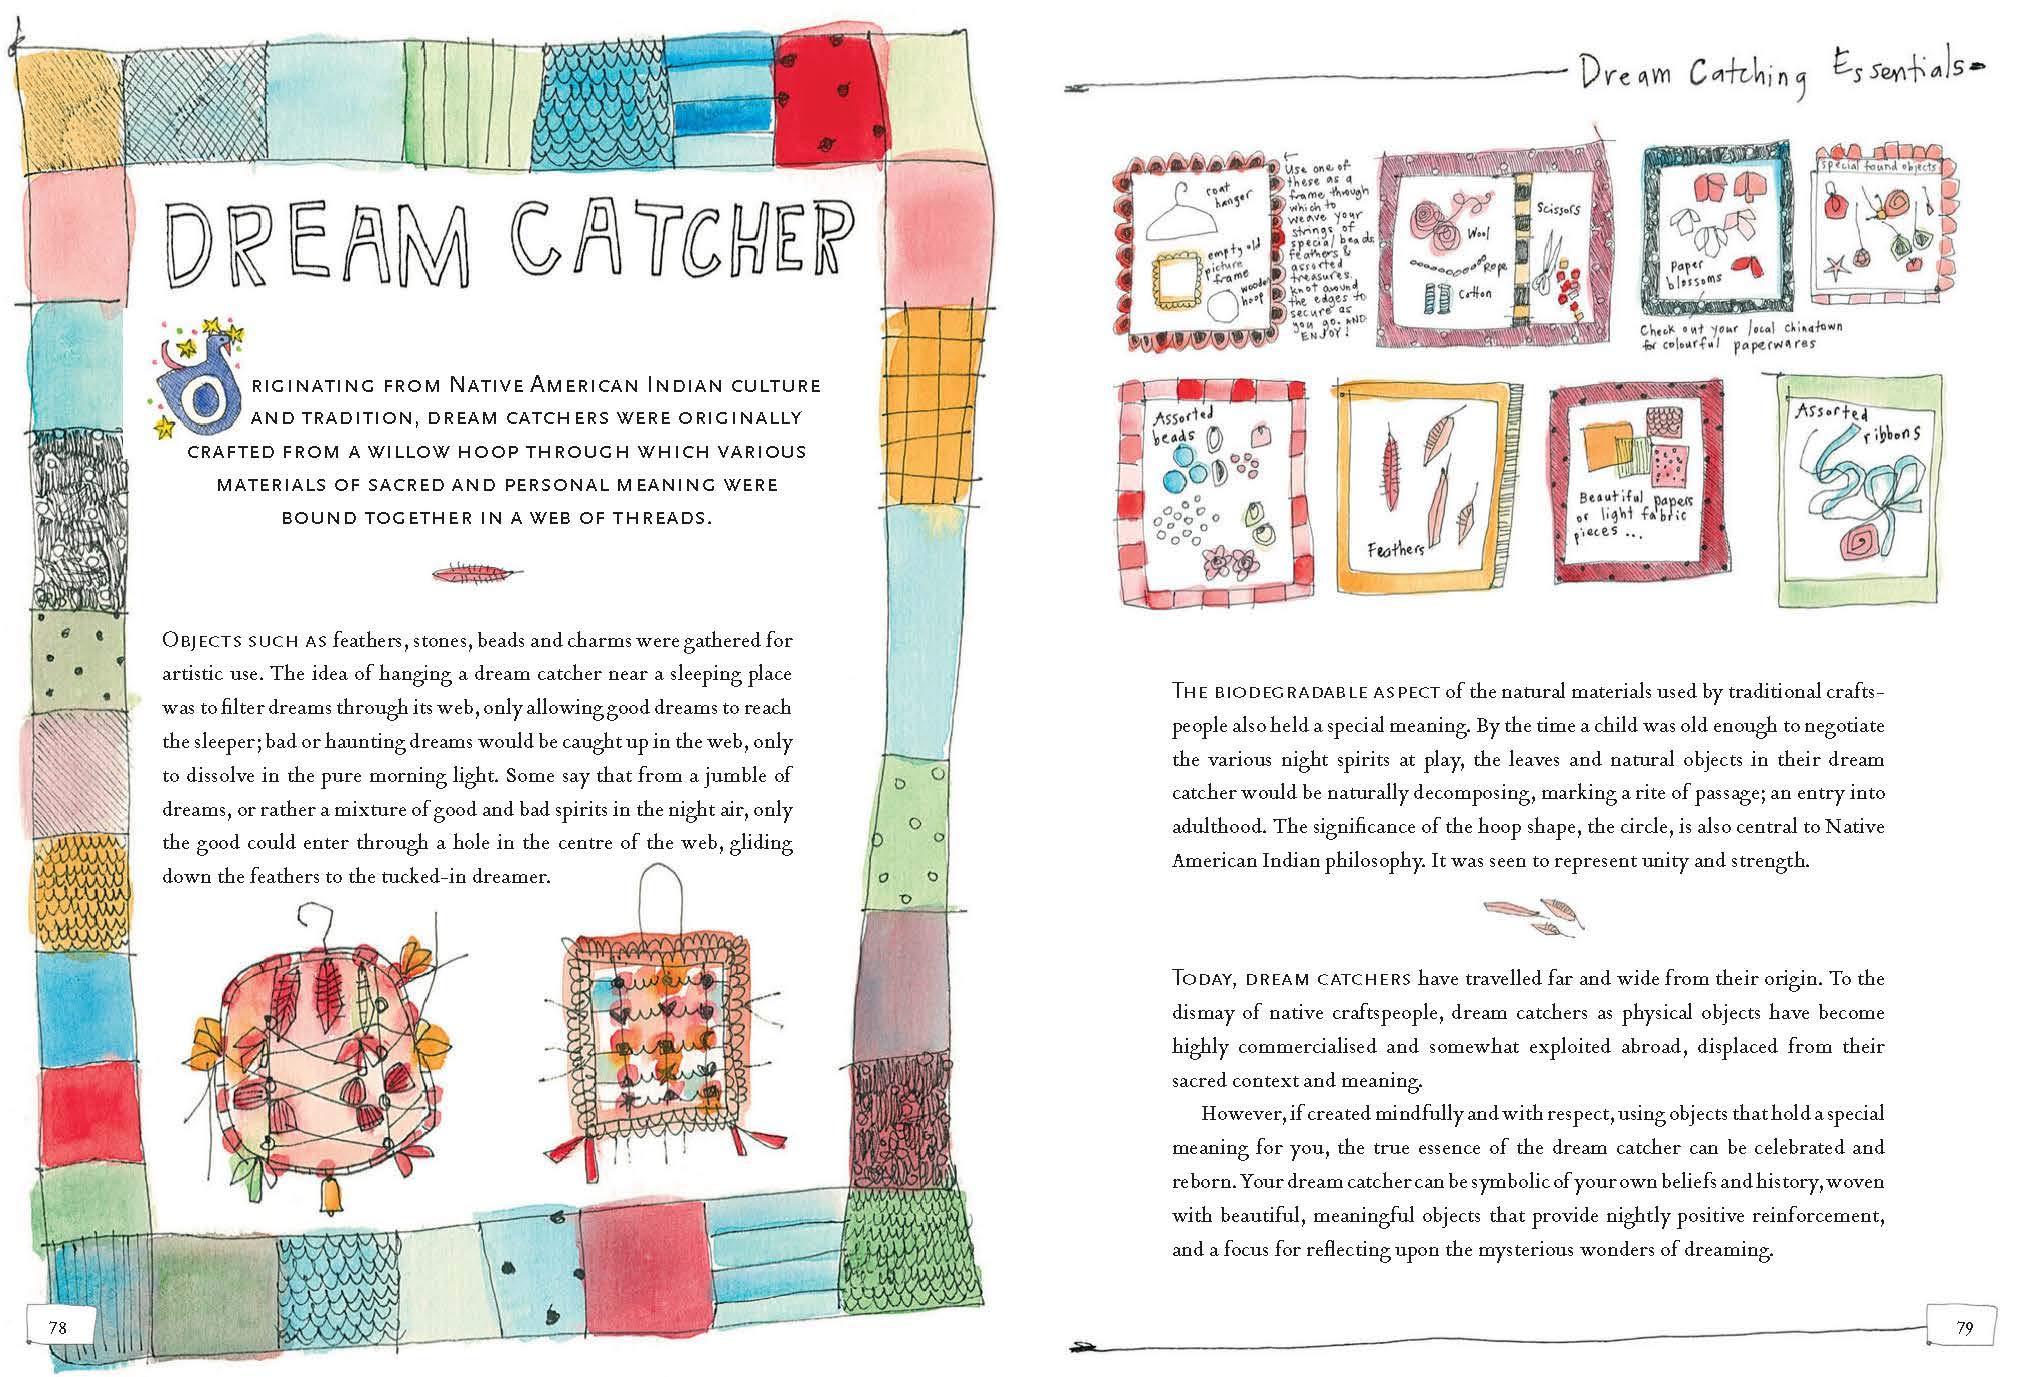 DREAM CATCHER
ORIGINATING FROM NATIVE AMERICAN INDIAN CULTURE
AND TRADITION, DREAM CATCHERS WERE ORIGINALLY
CRAFTED FROM A WILLOW HOOP THROUGH WHICH VARIOUS
MATERIALS OF SACRED AND PERSONAL MEANING WERE
BOUND TOGETHER IN A WEB OF THREADS.
OBJECTS SUCH AS feathers, stones, beads and charms were gathered for
artistic use. The idea of hanging a dream catcher near a sleeping place
was to filter dreams through its web, only allowing good dreams to reach
the sleeper; bad or haunting dreams would be caught up in the web, only
to dissolve in the pure morning light. Some say that from a jumble of
dreams, or rather a mixture of good and bad spirits in the night air, only
the good could enter through a hole in the centre of the web, gliding
down the feathers to the tucked-in dreamer.
78
Dream Catching Essentials
coat
hanger
empty old
picture
frame
wooden
hoop
Use one of
these as a
frame through
which to
weave your
strings of
special beads
feathers &
assorted
treasures.
knot around
the edges to
secure as
you go. AND
ENJOY!
Wool
Rope
Cotton
Scissors
Paper
blossoms
Check out your local chinatown
for colourful paperwares
special found objects
Assorted
beads
Feathers
Beautiful papers
or light fabric
pieces ...
Assorted
ribbons
THE BIODEGRADABLE ASPECT of the natural materials used by traditional crafts-
people also held a special meaning. By the time a child was old enough to negotiate
the various night spirits at play, the leaves and natural objects in their dream
catcher would be naturally decomposing, marking a rite of passage; an entry into
adulthood. The significance of the hoop shape, the circle, is also central to Native
American Indian philosophy. It was seen to represent unity and strength.
TODAY, DREAM CATCHERS have travelled far and wide from their origin. To the
dismay of native craftspeople, dream catchers as physical objects have become
highly commercialised and somewhat exploited abroad, displaced from their
sacred context and meaning.
However, if created mindfully and with respect, using objects that hold a special
meaning for you, the true essence of the dream catcher can be celebrated and
reborn. Your dream catcher can be symbolic of your own beliefs and history, woven
with beautiful, meaningful objects that provide nightly positive reinforcement,
and a focus for reflecting upon the mysterious wonders of dreaming.
79